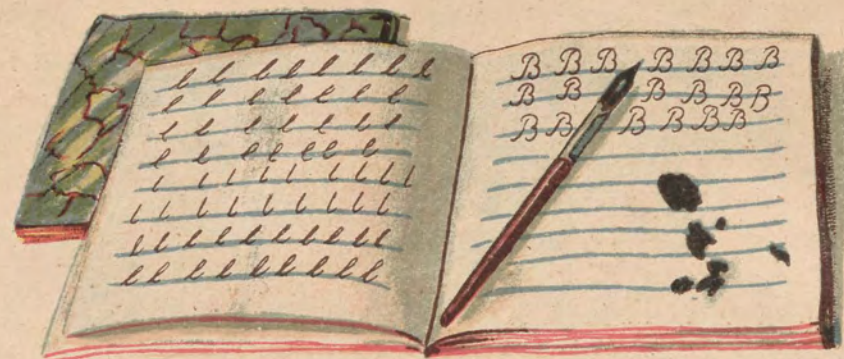 l l l l l l l l l
l l l l l l l l
l l l l l l l
l l l l l l l l
l l l l l l l l l l l
l l l l l l l l l l
l l l l l l l l l l l
l l l l l l l l l l
B B B B B B B
B B B B B B
B B B B B B